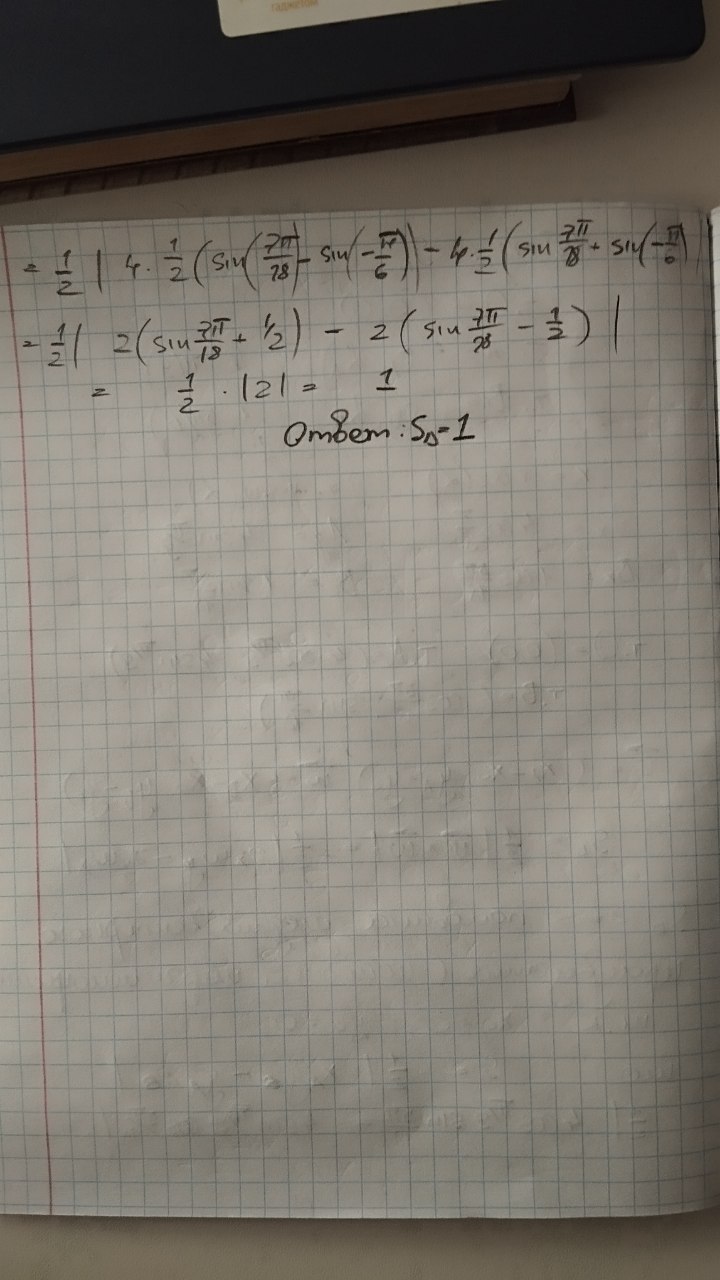 гаджетом
= 1/2 | 4 · 1/2 (sin(7π/18) - sin(-π/6)) - 4 · 1/2 (sin 7π/18 + sin(-π/6)
= 1/2 | 2(sin 7π/18 + 1/2) - 2(sin 7π/18 - 1/2) |
= 1/2 · |2| = 1
Ответ: S△=1